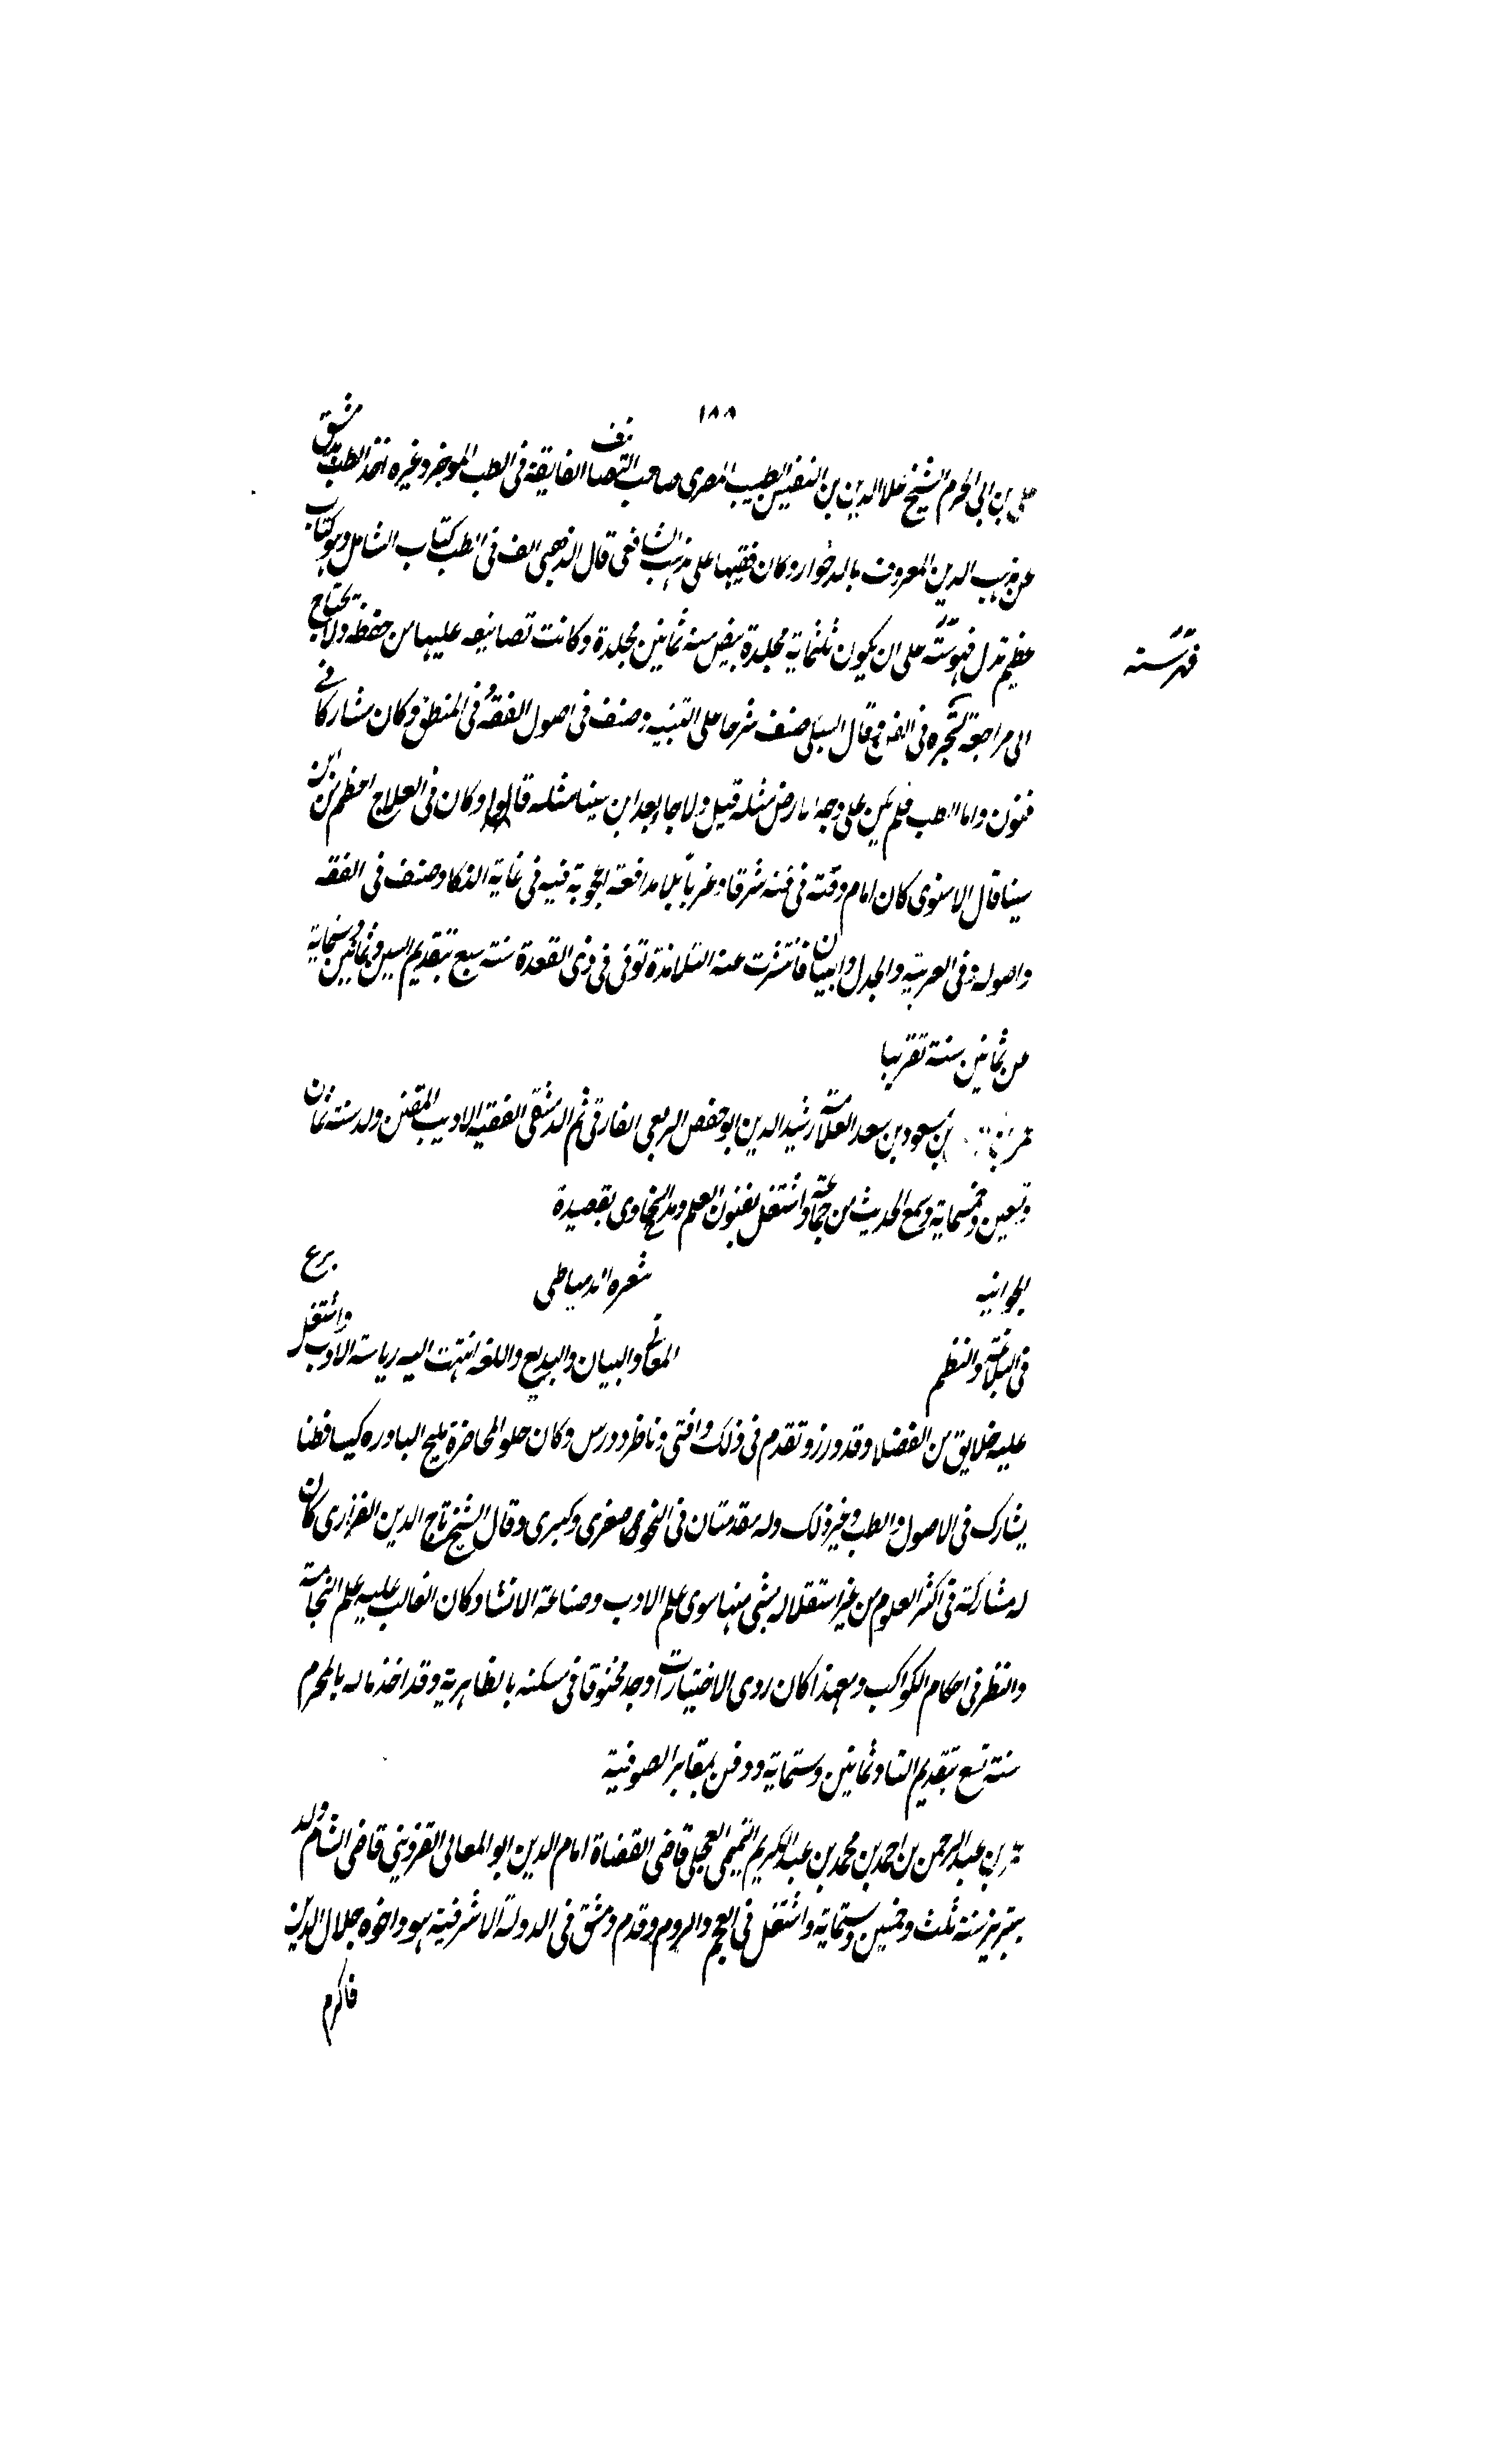 ١٨٨
على بن ابى الحرم الشيخ علا الدين بن النفيس الطبيب المصرى صاحب التصانيف الفايقة فى الطب الموجز وغيره اخذ الطب بدمشق
عن مهذب الدين المعروف بالدخوار وكان فقيها على مذهب الشافعى قال الذهبى الف فى الطب كتاب الشامل وهو كتاب
عظيم تدل فهرسته على ان يكون ثلثماية مجلدة بيض منه ثمانين مجلدة وكانت تصانيفه عليها من حفظه ولا يحتاج
فهرسته
الى مراجعة لتبحره فى الفن وقال السبكى صنف شرحا على التنبيه وصنف فى اصول الفقه وفى المنطق وكان مشاركا فى
فنون واما الطب فلم يكن على وجه الارض مثله قيل ولا جا بعد ابن سينا مثله قالوا وكان فى العلاج اعظم من ابن
سينا قال الاسنوى كان امام وقته فى فنه شرقا وغربا بلا مدافعة اعجوبة فيه فى غاية الذكا وصنف فى الفقه
واصوله وفى العربية والجدل والبيان فانتشرت عنه التلامذة توفى فى ذى القعدة سنة سبع بتقديم السين وثمانين وستماية
عن ثمانين سنة تقريبا
عمر بن بن مسعود بن سعد العلامة رشيد الدين ابو حفص الربعى الفارقى ثم الدمشقى الفقيه الاديب المفنن ولد سنة ثمان
وتسعين وخمسماية وسمع الحديث من جماعة واشتغل بفنون العلم ومدح السخاوى بقصيدة
الجوانيه شعره الدمياطى برع
فى البلاغة والنظم المعانى والبيان والبديع واللغه انتهت اليه رياسة الادب واشتغل
عليه خلايق من الفضلا وقد وزر وتقدم فى ذلك وافتى وناظر ودرس وكان حلو المحاضرة مليح البادره كيسا فطنا
يشارك فى الاصول والطب وغير ذلك وله مقدمتان فى النحو صغرى وكبرى وقال الشيخ تاج الدين الفزارى كان
له مشاركة فى اكثر العلوم من غير استقلال بشى منها سوى علم الادب وصناعة الانشا وكان الغالب عليه علم النجامة
والنظر فى احكام الكواكب ومع هذا كان ردى الاختيارات وجد مخنوقا فى مسكنه بالظاهرية وقد اخذ ماله بالمحرم
سنة تسع بتقديم التا وثمانين وستماية ودفن بمقابر الصوفية
عمر بن عبد الرحمن بن احمد بن محمد بن عبد الكريم التميمى العجلى قاضى القضاة امام الدين ابو المعالى القزوينى قاضى الشام ولد
بتبريز سنة ثلث وخمسين وستماية واشتغل فى العجم والروم وقدم دمشق فى الدولة الاشرفية هو واخوه جلال الدين
فاكرم